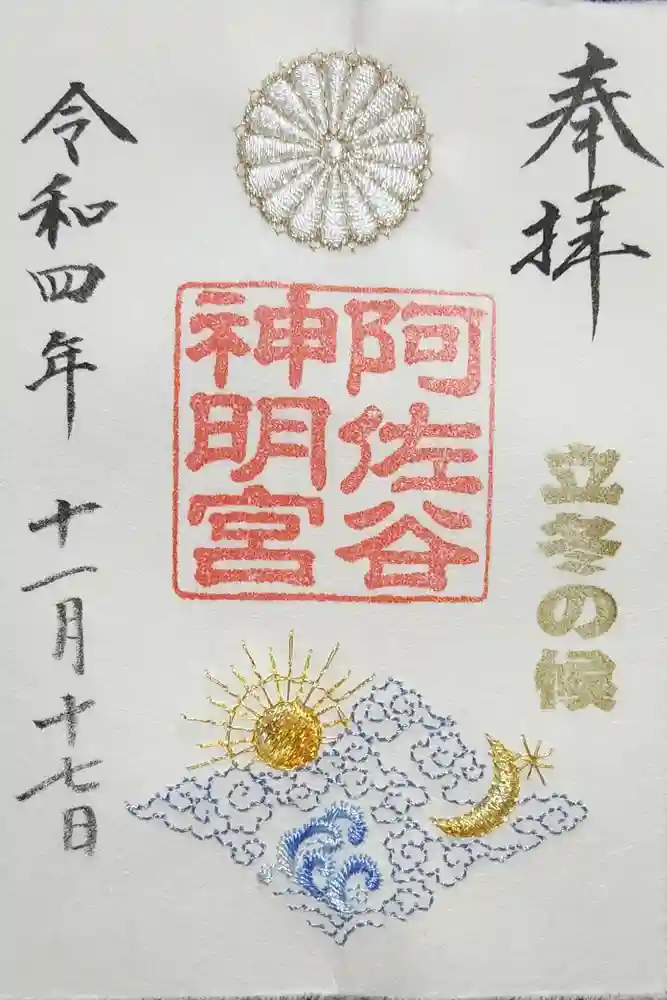 奉拝
立冬の候
阿佐谷
神明宮
令和四年 十一月十七日